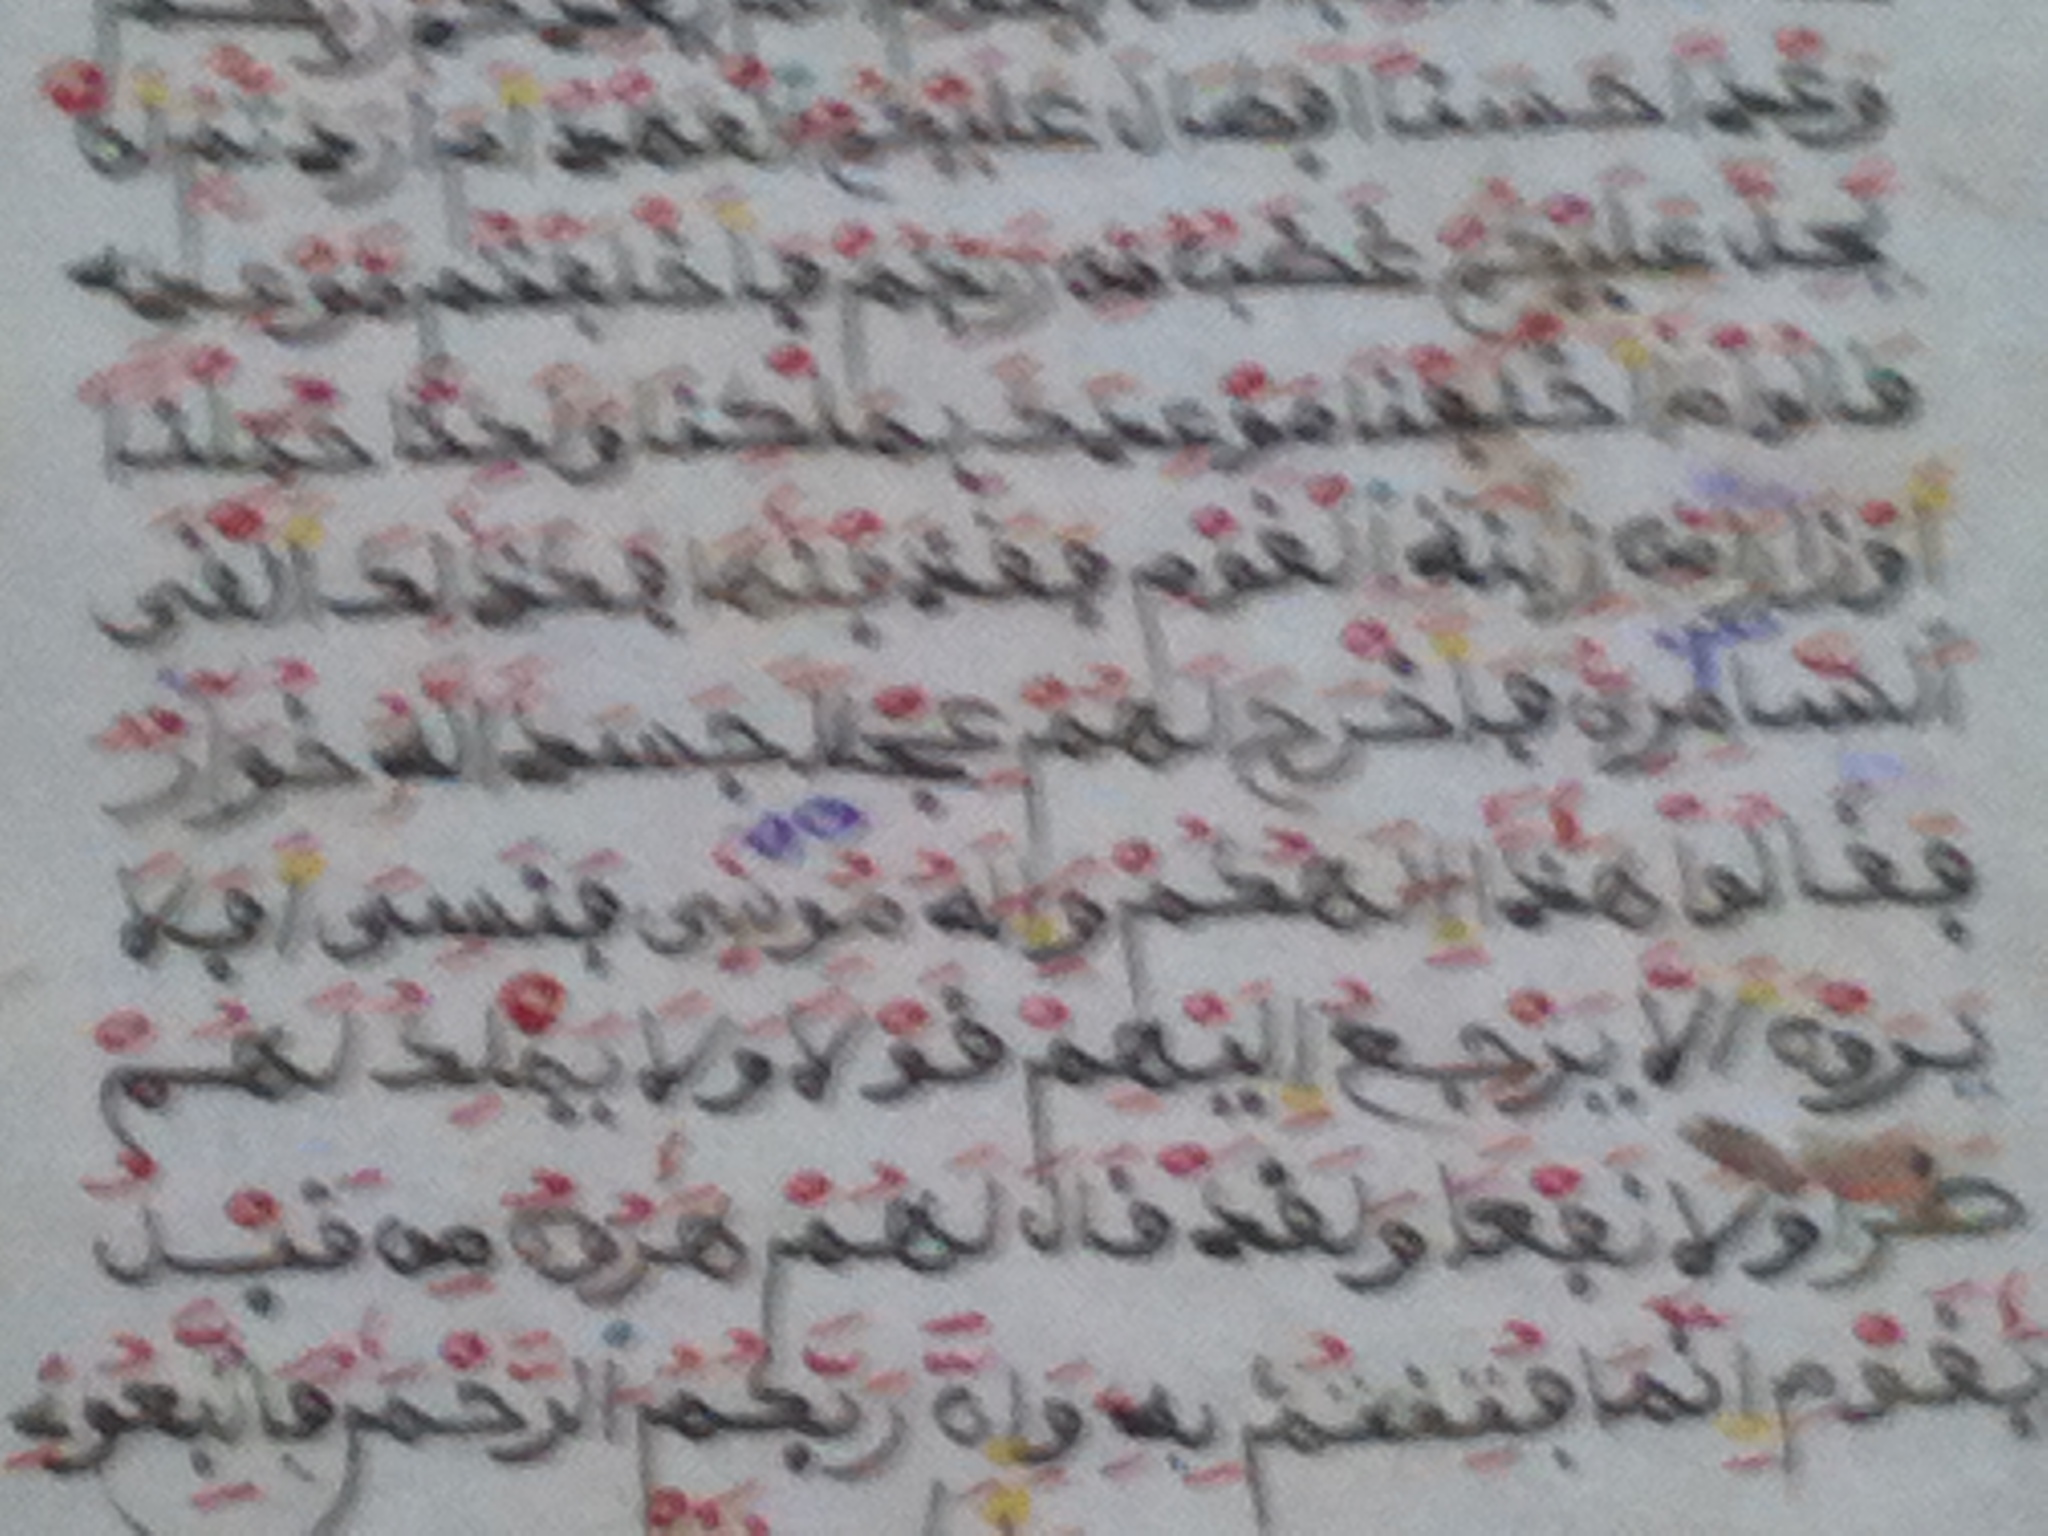 وعدا حسنا افطال عليكم العهد ام اردتم ان
يحل عليكم غضب من ربكم فاخلفتم موعدي
قالوا ما اخلفنا موعدك بملكنا ولكنا حملنا
اوزارا من زينة القوم فقذفنها فكذلك القى
السامري فاخرج لهم عجلا جسدا له خوار
فقالوا هذا الهكم واله موسى فنسي افلا
يرون الا يرجع اليهم قولا ولا يملك لهم
ضرا ولا نفعا ولقد قال لهم هرون من قبل
يقوم انما فتنتم به وان ربكم الرحمن فاتبعوني